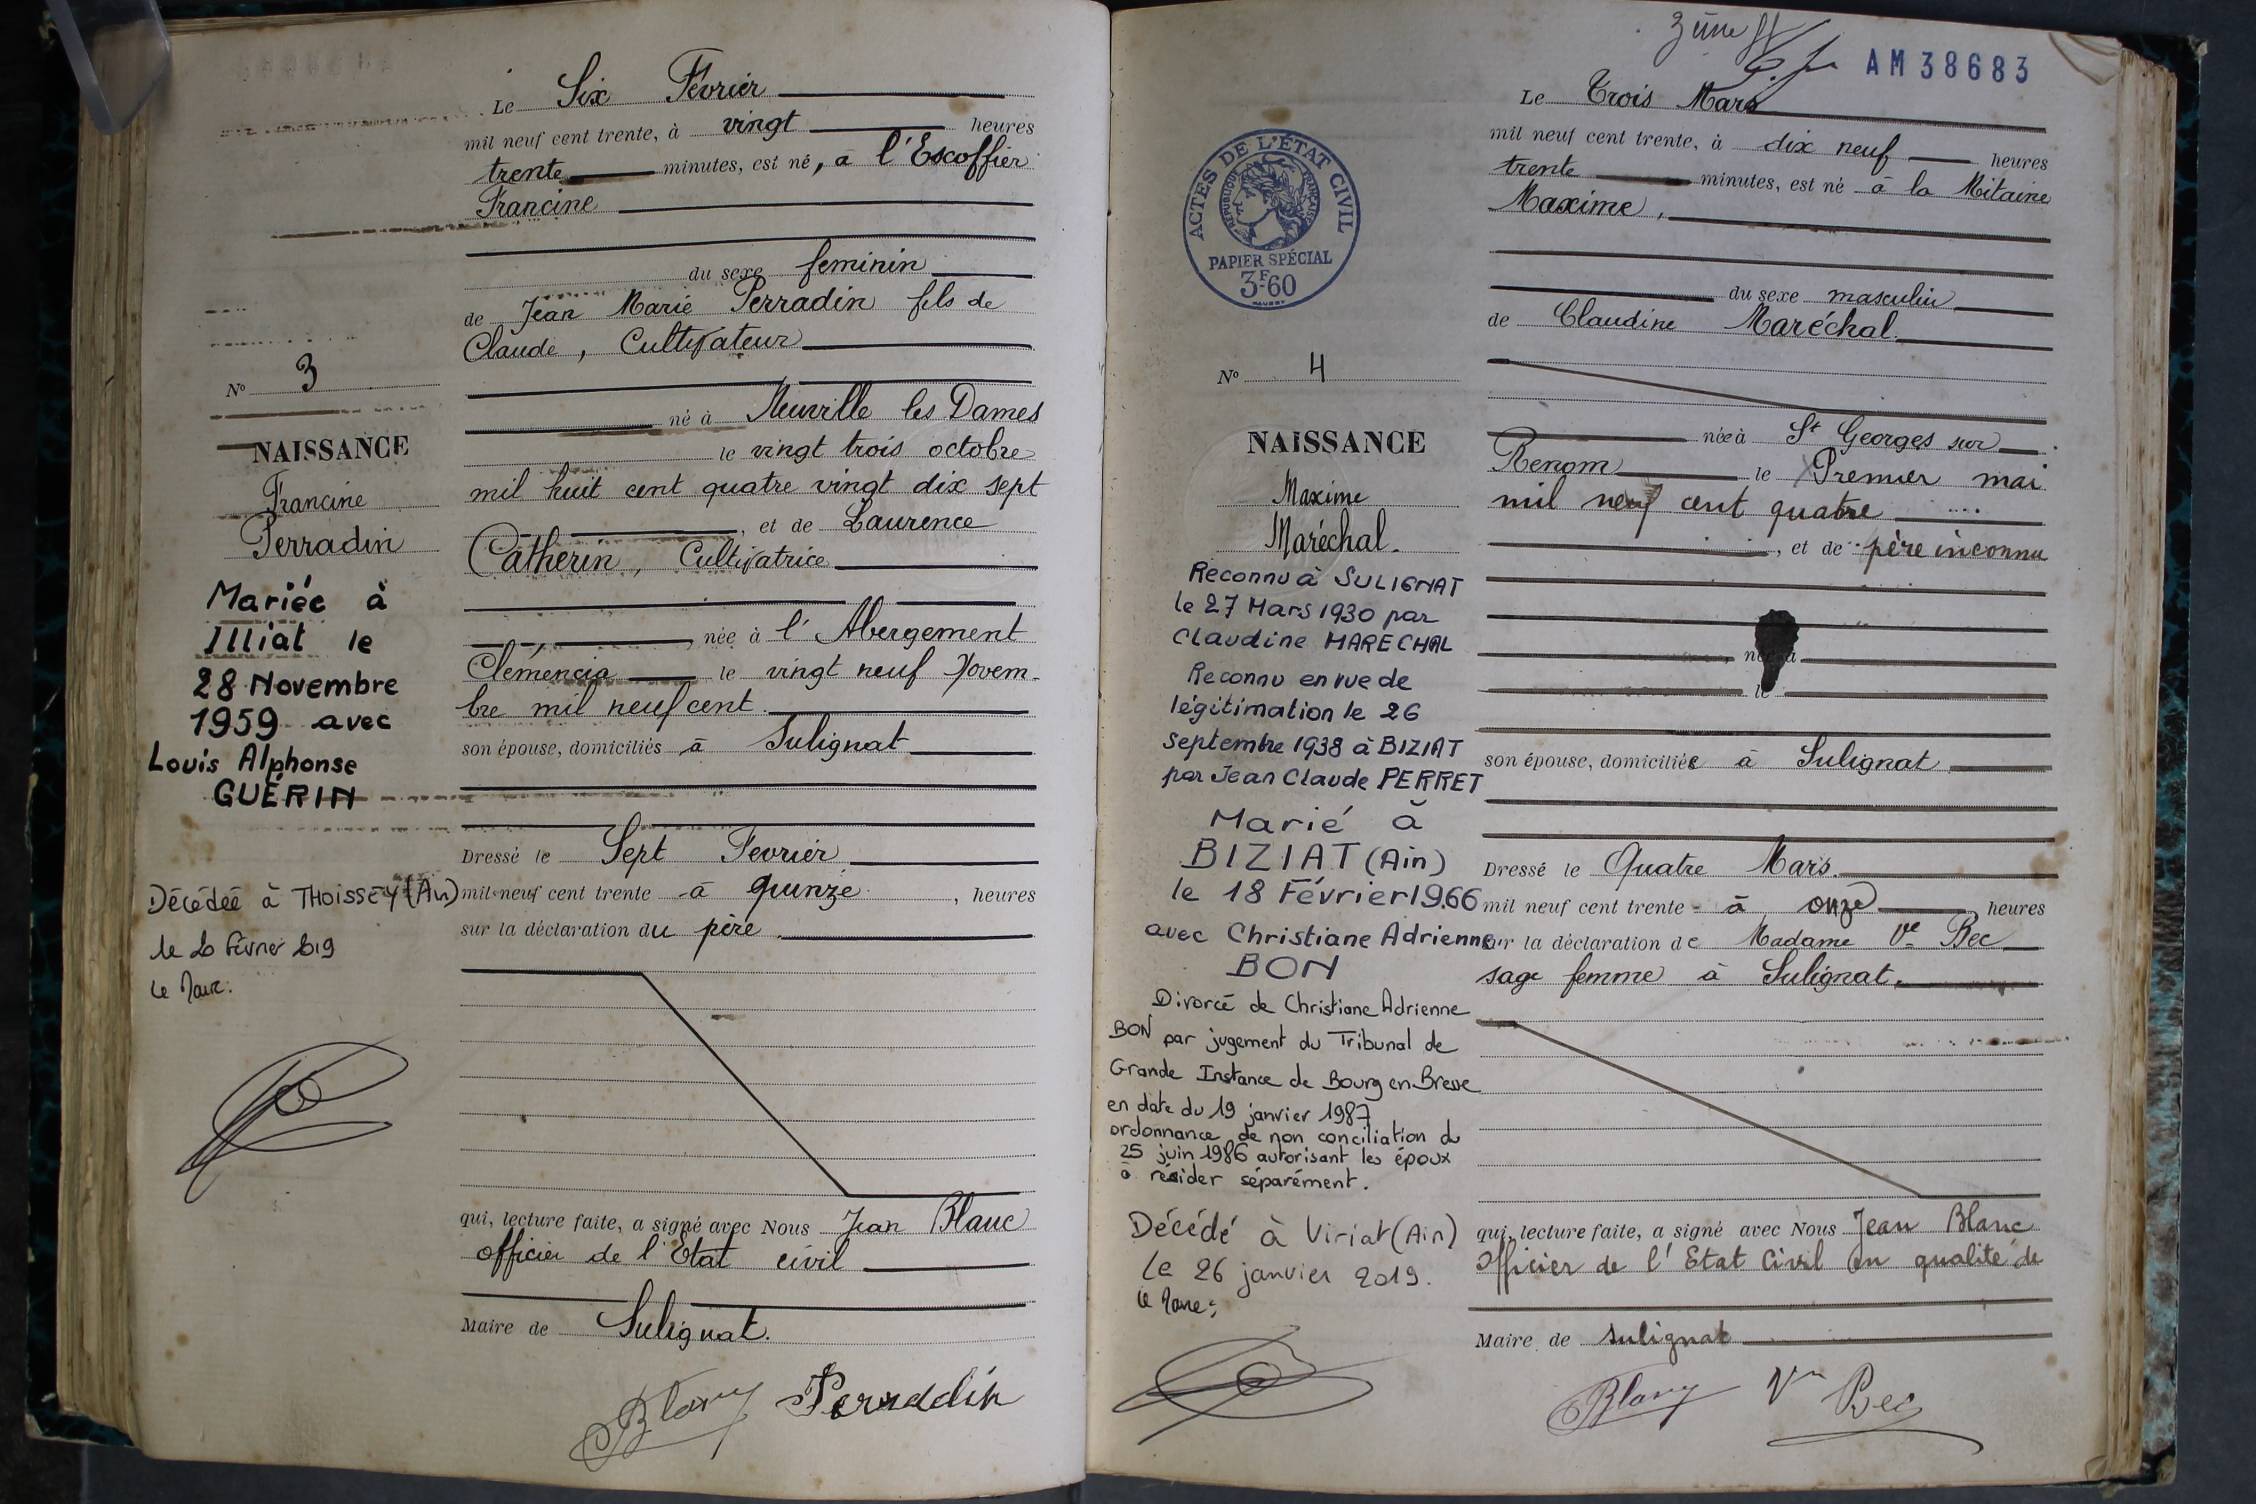 Le Six Février
mil neuf cent trente, à vingt heures
trente minutes, est né, à l'Escoffier
Francine
du sexe feminin
de Jean Marie Perradin fils de
Claude, Cultivateur
né à Neuville les Dames
le vingt trois octobre
mil huit cent quatre vingt dix sept
, et de Laurence
Catherin, Cultivatrice
née à l'Abergement
Clémencia le vingt neuf Novem-
bre mil neuf cent.
son épouse, domiciliés à Sulignat
Dressé le Sept Fevrier
mil neuf cent trente à quinze, heures
sur la déclaration du père
qui, lecture faite, a signé avec Nous Jean Blanc
officier de l'Etat civil
Maire de Sulignat.
Blanc Perradin
No 3
NAISSANCE
Francine
Perradin
Mariée à
Illiat le
28 Novembre
1959 avec
Louis Alphonse
GUÉRIN
Décédée à THOISSEY (Ain)
le 20 Février 2019
Le Maire:
AM38683
Le Trois Mars
mil neuf cent trente, à dix neuf heures
trente minutes, est né à la Mitaine
Maxime,
du sexe masculin
de Claudine Maréchal.
née à St Georges sur
Renom le Premier mai
mil neuf cent quatre
, et de père inconnu
née à
le
son épouse, domiciliée à Sulignat
Dressé le Quatre Mars.
mil neuf cent trente - à onze heures
sur la déclaration de Madame Ve Bec
sage femme à Sulignat.
qui, lecture faite, a signé avec Nous Jean Blanc
Officier de l'Etat Civil en qualité de
Maire de Sulignat
Blanc Ve Bec
ACTES DE L'ÉTAT CIVIL
RÉPUBLIQUE FRANÇAISE
PAPIER SPÉCIAL
3F60
No 4
NAISSANCE
Maxime
Maréchal.
Reconnu à SULIGNAT
le 27 Mars 1930 par
Claudine MARECHAL
Reconnu en vue de
légitimation le 26
septembre 1938 à BIZIAT
par Jean Claude PERRET
Marié à
BIZIAT (Ain)
le 18 Février 1966
avec Christiane Adrienne
BON
Divorcé de Christiane Adrienne
BON par jugement du Tribunal de
Grande Instance de Bourg en Bresse
en date du 19 janvier 1987
ordonnance de non conciliation du
25 juin 1986 autorisant les époux
à résider séparément.
Décédé à Viriat (Ain)
Le 26 janvier 2019.
Le Maire: